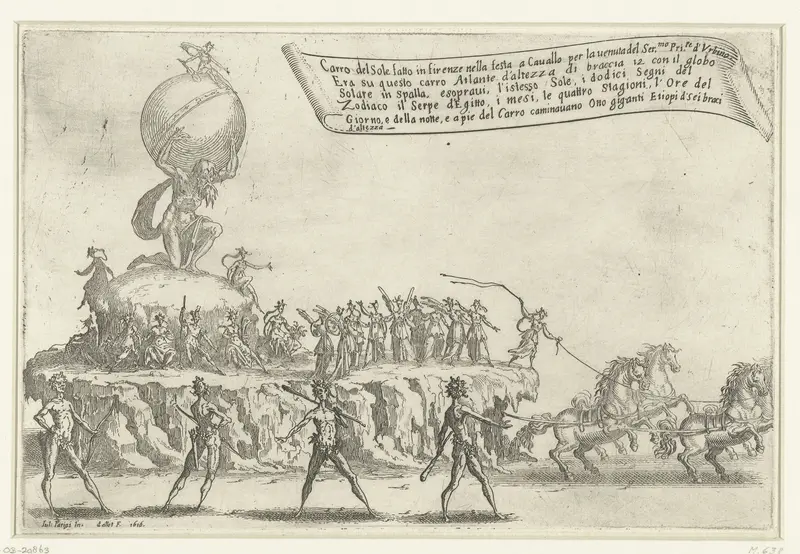 Carro del Sole fatto in firenze nella festa a Cauallo per la uenuta del Ser.mo Pri.pe d'Vrbino
Era su questo carro Atlante d'altezza di braccia 12 con il globo
Solare in Spalla, esoprauı, l'istesso Sole, i dodici Segni del
Zodiaco il Serpe d'Egitto, i mesi, le quattro Stagioni, l'Ore del
Giorno, e della notte, e a pie del Carro caminauano Otto giganti Etiopi d'Sei braci
d'altezza
Iul. Parigi In. Callot F. 1616.
OB-20863 M. 638